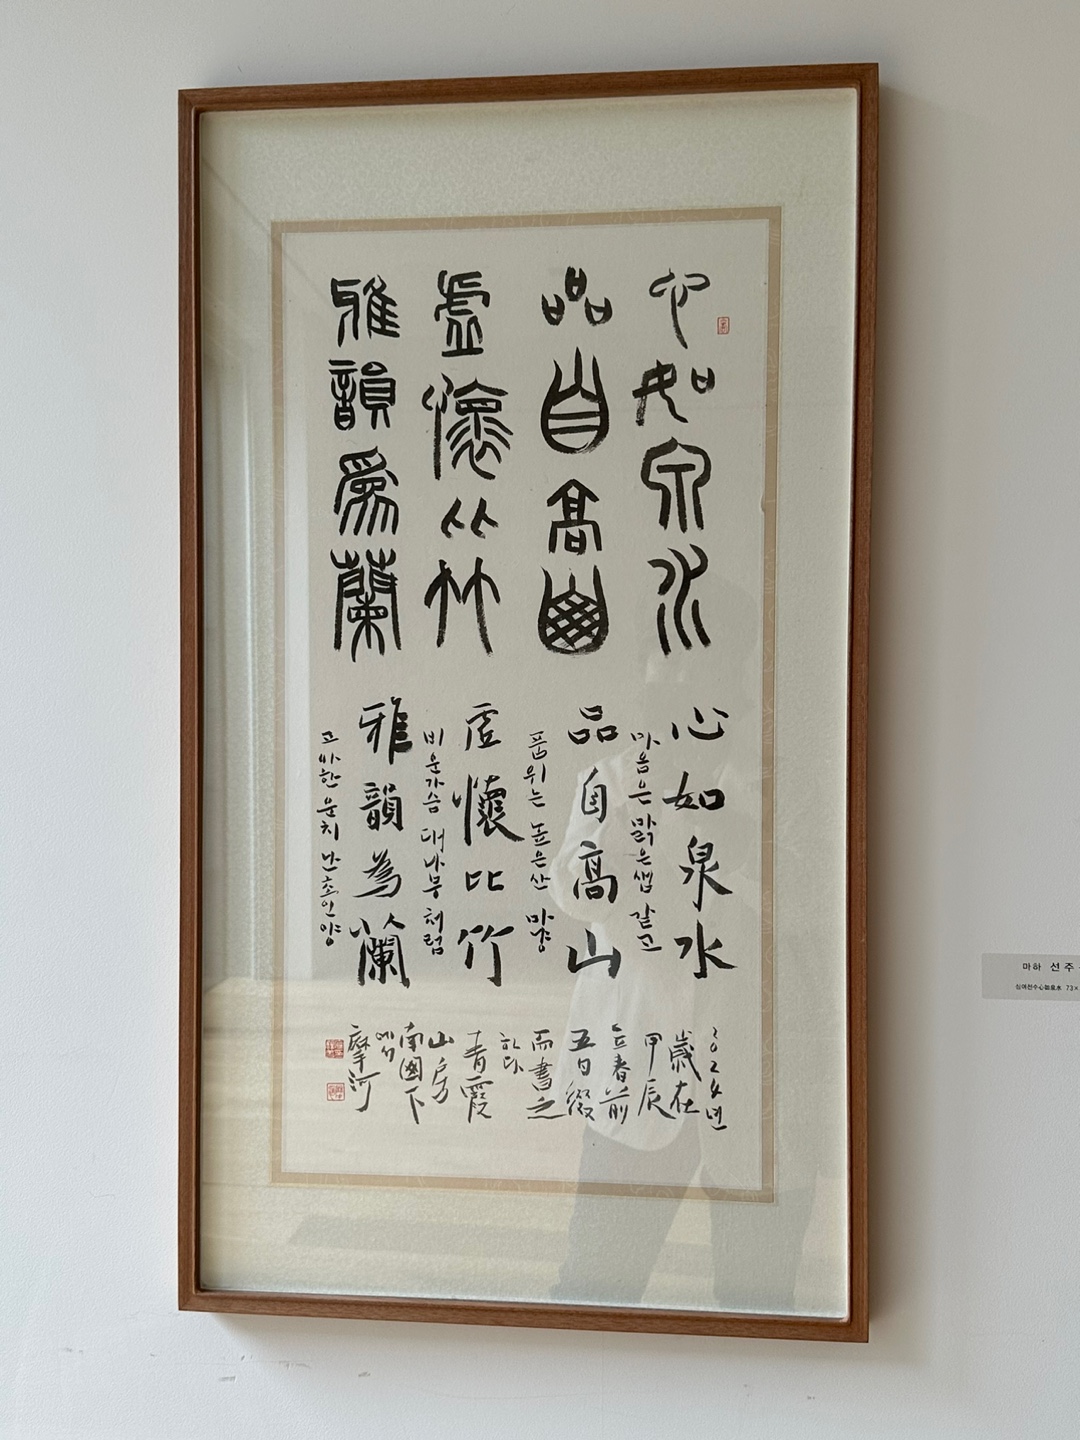 心如泉水
品自高山
虛懷比竹
雅韻爲蘭
心如泉水
마음은 맑은샘 같고
品自高山
품위는 높은산 마냥
虛懷比竹
비운가슴 대나무처럼
雅韻為蘭
고아한 운치 난초인양
2024년
歲在
甲辰
立春前
五日綴
而書之
하다
青霞
山房
南窗下
에서
摩河
마하 선주
심여천수心如泉水 73×